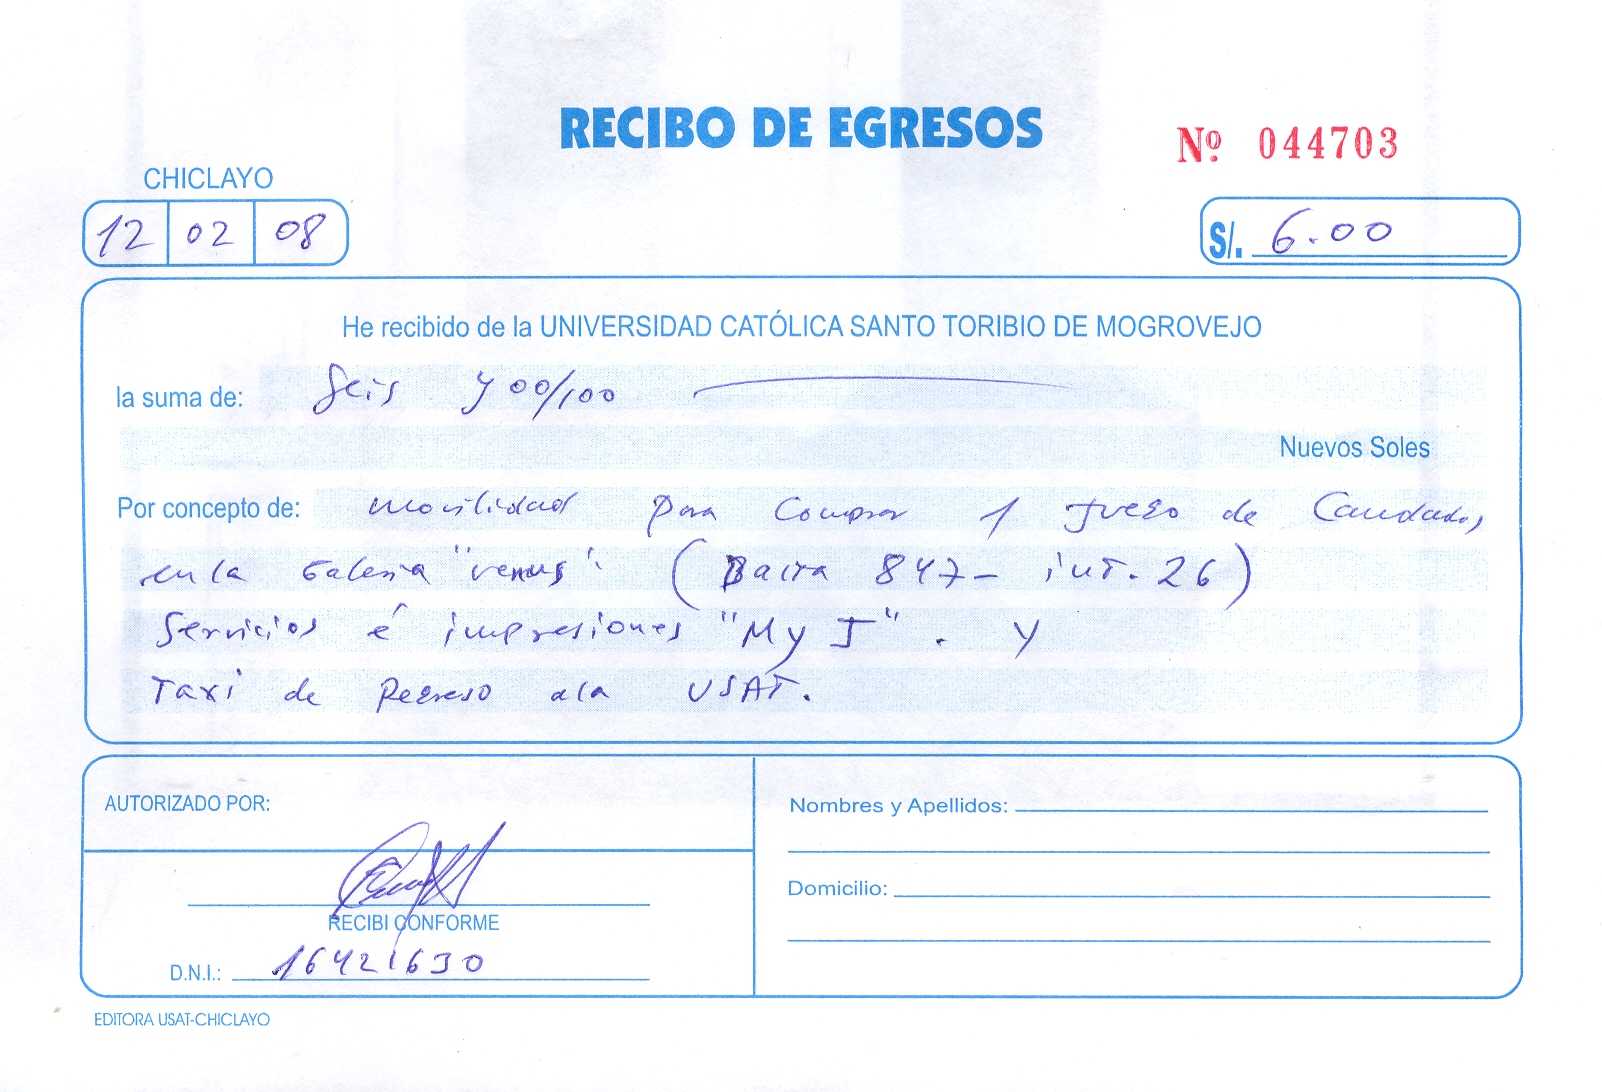 RECIBO DE EGRESOS
Nº 044703
CHICLAYO
12 02 08
S/. 6.00
He recibido de la UNIVERSIDAD CATÓLICA SANTO TORIBIO DE MOGROVEJO
la suma de: Seis y 00/100
Nuevos Soles
Por concepto de: movilidad para Comprar 1 Juego de Candados
en la Galeria "Venus" (Balta 847- int. 26)
Servicios é impresiones "My J". y
Taxi de Regreso a la USAT.
AUTORIZADO POR:
Nombres y Apellidos:
Domicilio:
RECIBI CONFORME
D.N.I.: 16421630
EDITORA USAT-CHICLAYO